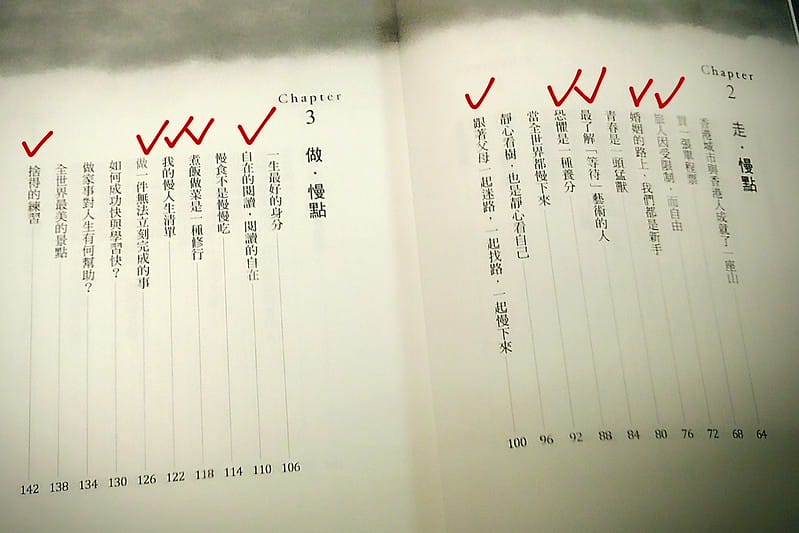 Chapter 2
走・慢點
香港城市與香港人成就了一座山 64
買一張單程票 68
旅人因受限制，而自由 72
婚姻的路上，我們都是新手 76
青春是一頭猛獸 80
最了解「等待」藝術的人 84
恐懼是一種養分 88
當全世界都慢下來 92
靜心看樹，也是靜心看自己 96
跟著父母一起迷路，一起找路，一起慢下來 100
Chapter 3
做・慢點
一生最好的身分 106
自在的閱讀，閱讀的自在 110
慢食不是慢慢吃 114
煮飯做菜是一種修行 118
我的慢人生清單 122
做一件無法立刻完成的事 126
如何成功快與學習快？ 130
做家事對人生有何幫助？ 134
全世界最美的景點 138
捨得的練習 142